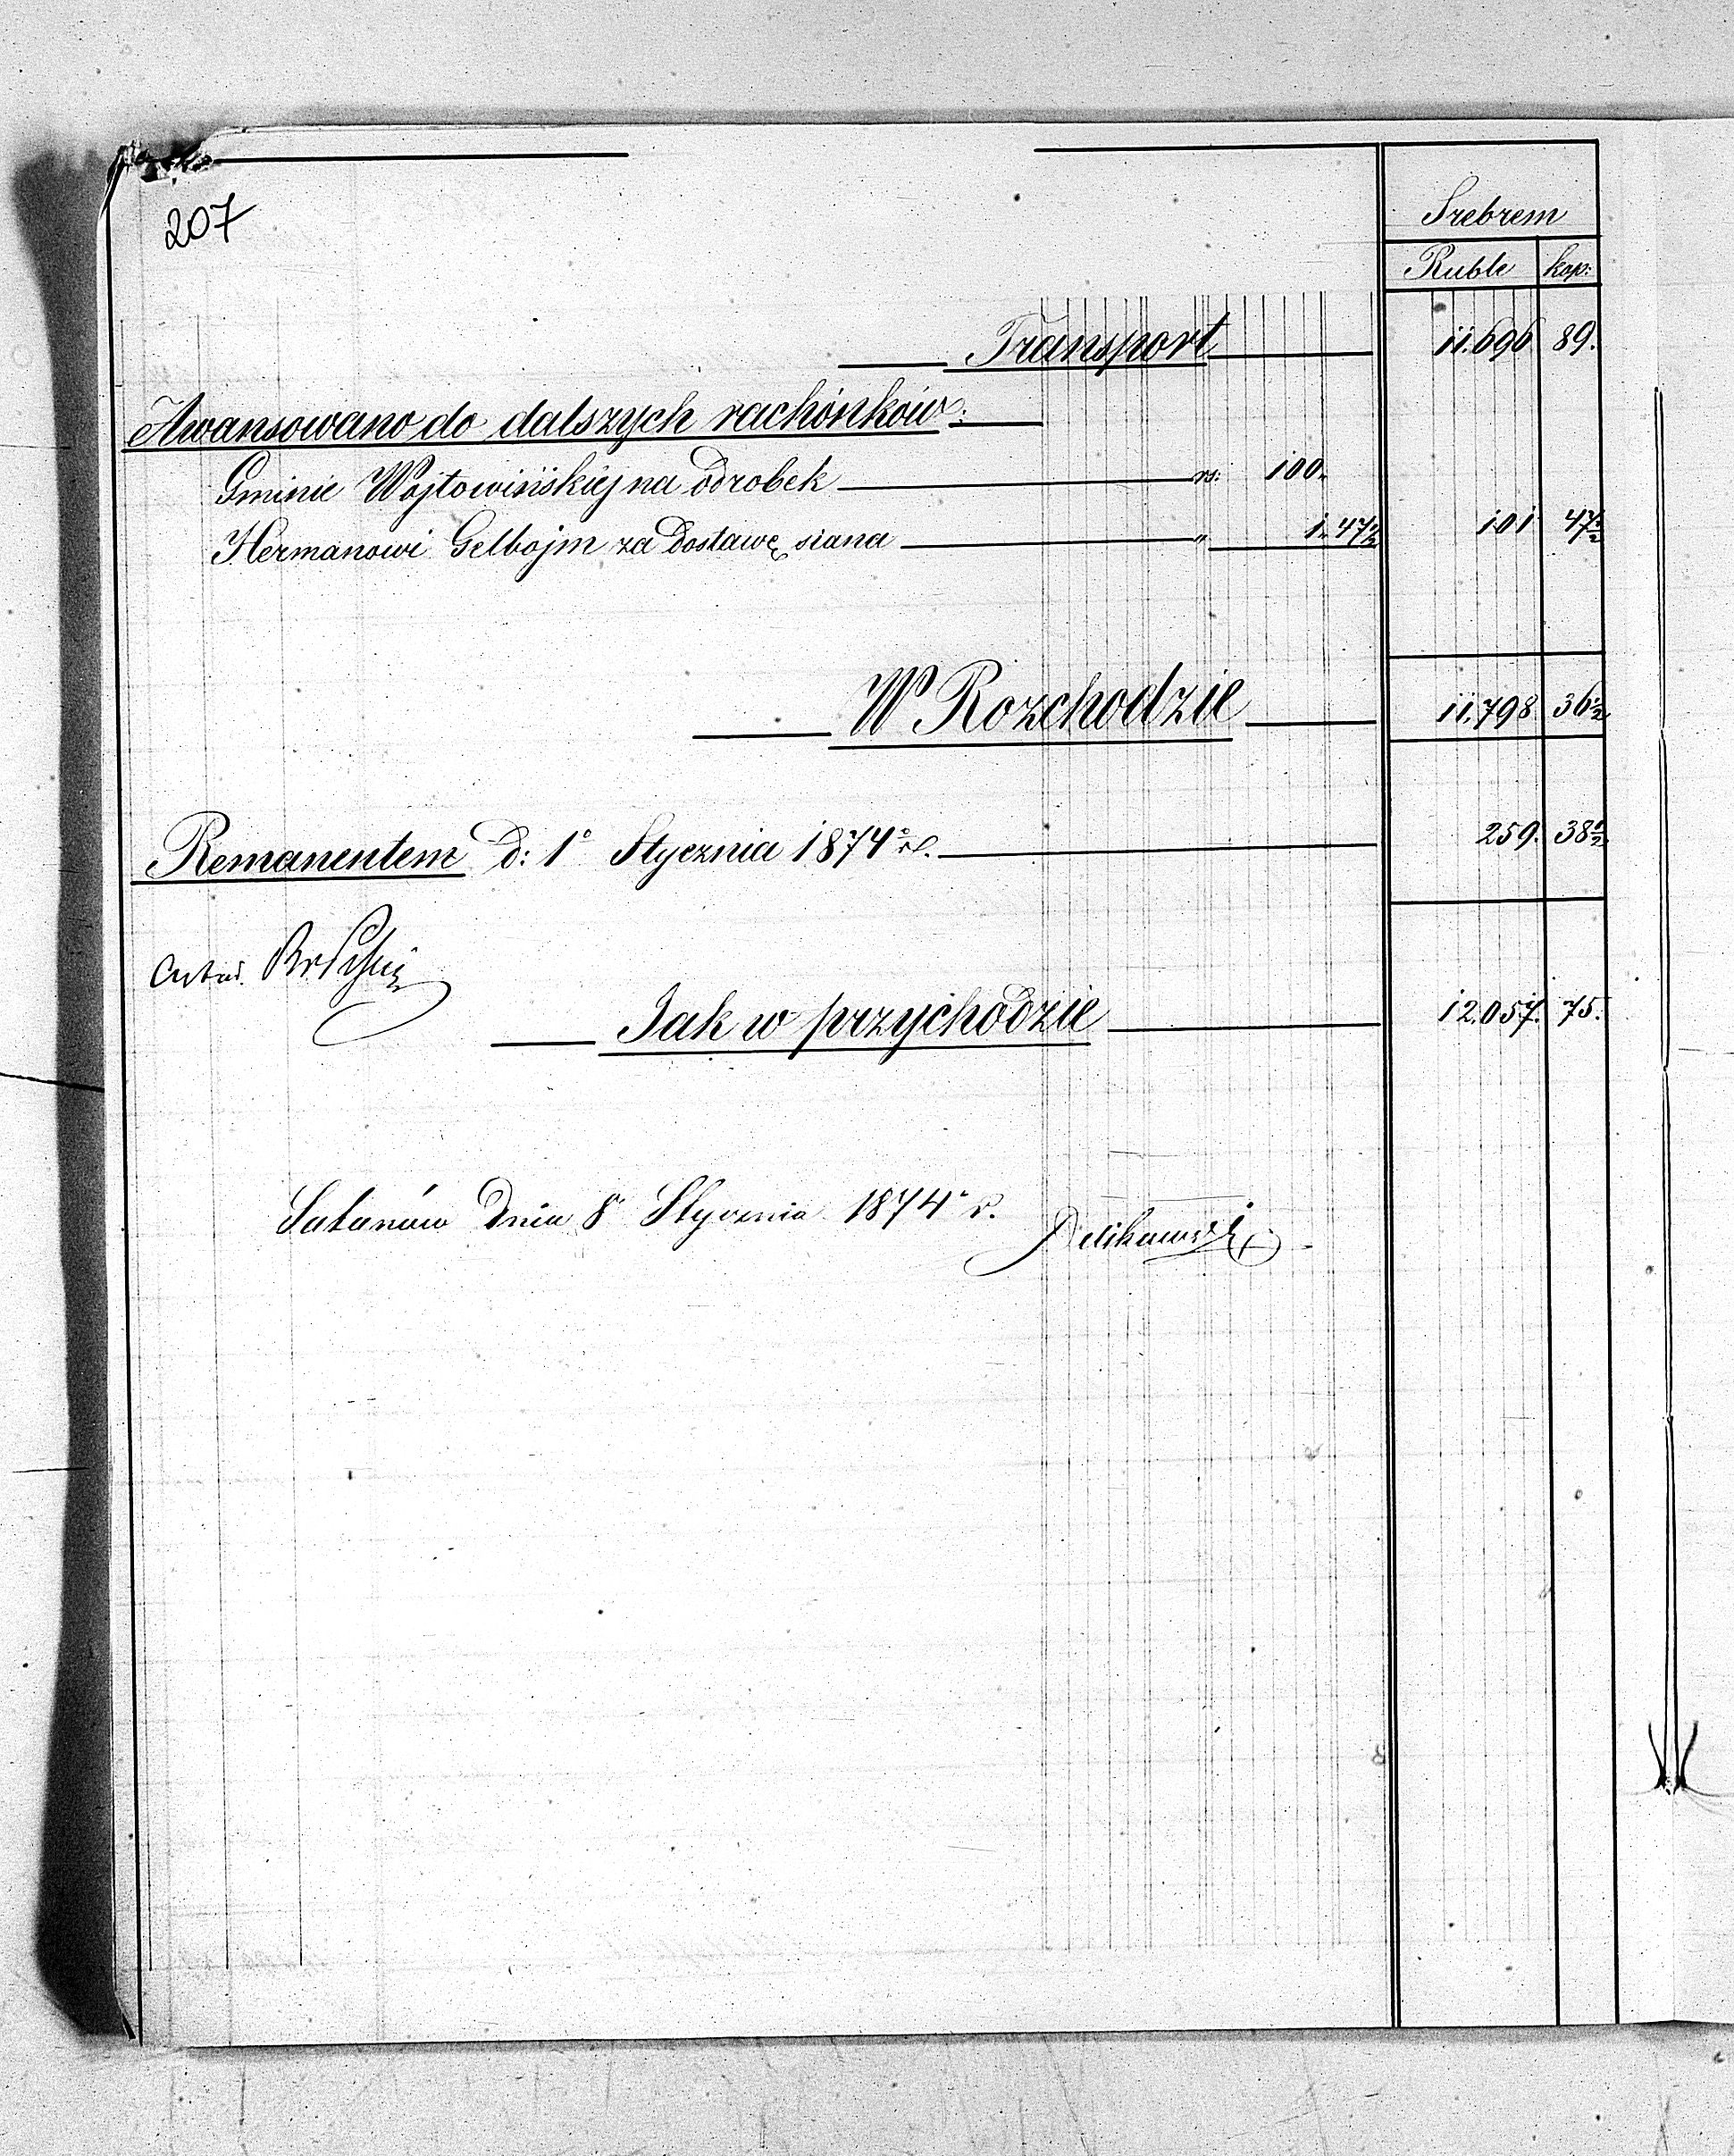 207
Srebrem
Ruble kop:
Transport 11.696 89.
Awansowano do dalszych rachónków:
Gminie Wojtowińskiéj na odrobek rs: 100 „
Hermanowi Gelbojm za dostawę siana „ 1. 47½ 101 47½
W Rozchodzie 11,798 36½
Remanentem d: 1° Stycznia 1874° r. 259. 38½
Jak w przychodzie 12.057. 75.
Satanów dnia 8° Stycznia 1874° r.